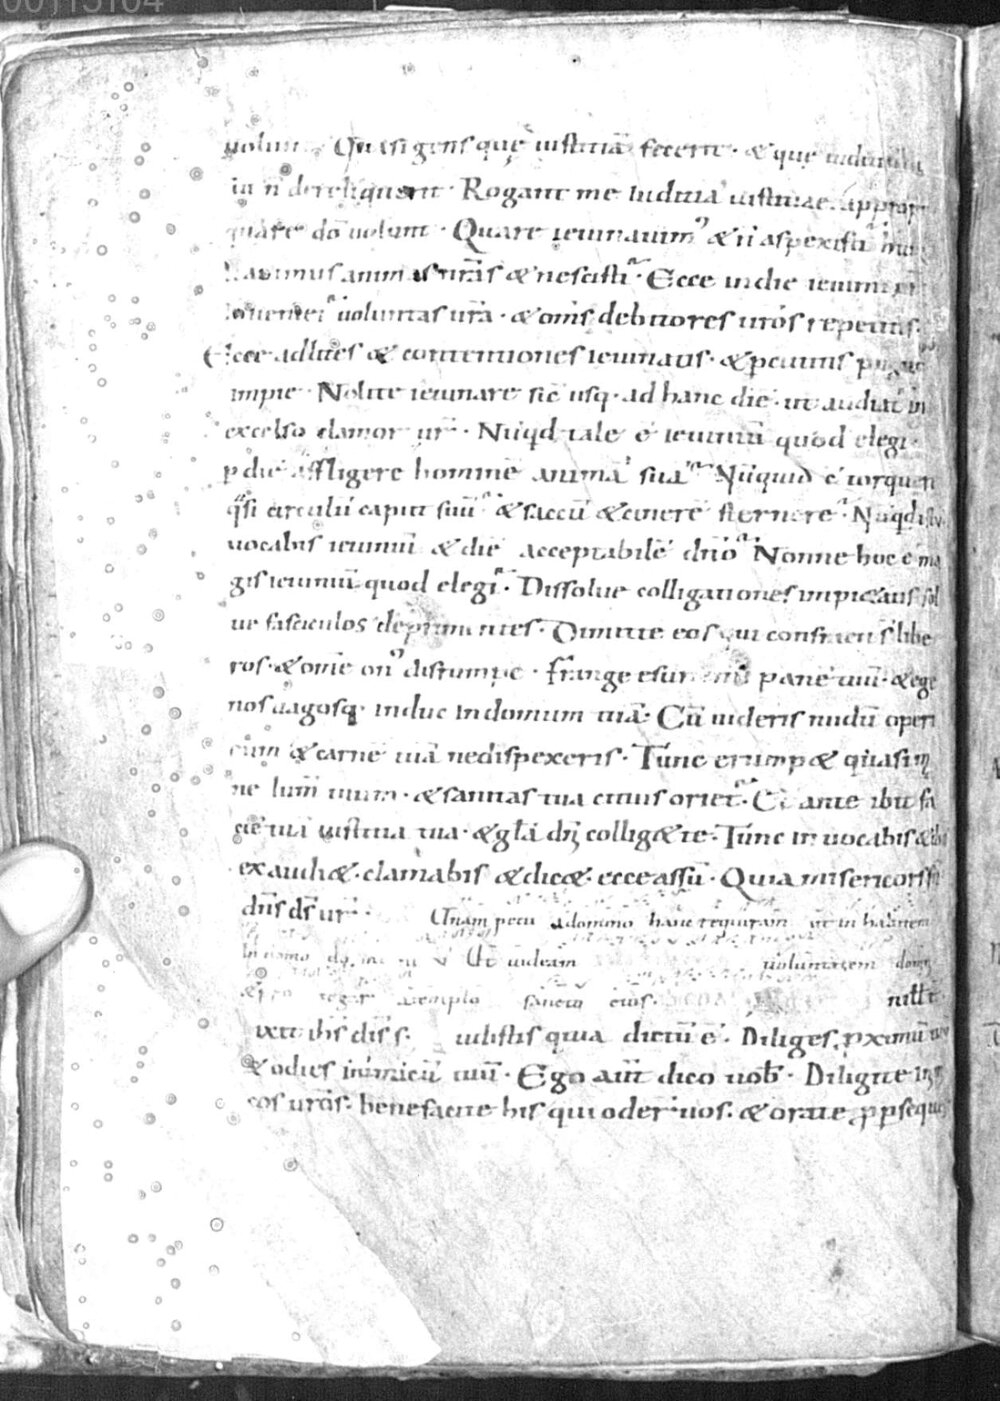 uolunt Quasi gens quę iustitiā fecerit · & quę iuditium
iū n̄ dereliquerit · Rogant me Iuditia iustitiae · appropin
quare dō uolunt · Quare ieiunauim' & n̄ aspexisti hu
animas nr̄as & nescisti · Ecce in die ieiunii
uoluntas ur̄a · & om̄s debitores ur̄os repetitis ·
Ecce adlites & contentiones ieiunatis · & pcutitis pugno
impie · Nolite ieiunare sic̄ usq· ad hanc diē · ut audiat̄ in
excelso clamor ur̄ · Nūqd tale ē ieiuniū quod elegi ·
p diē affligere hominē animā suā Nūquid ē torquere
qsi circulū caput suū & saccū & cinerē sternere · Nūqd istū
uocabis ieiuniū & diē acceptabilē dn̄o Nonne hoc ē ma
gis ieiuniū quod elegi · Dissolue colligationes impi&atis sol
ue fasciculos deprimentes · Dimitte eos qui confracti s̄ libe
ros · & om̄e on' disrumpe · frange esurienti panē tuū · & ege
nos uagosq· induc in domum tuā · Cū uideris nudū operi
eum & carnē tuā ne dispexeris · Tunc erump& quasi m
ne lum̄ tuum · & sanitas tua citius oriet̄ · Et ante ibit fa
ciē tuā iustitia tua · & gl̄a dn̄i collig& te · Tunc inuocabis & dn̄s
exaudi& · clamabis & dic& ecce assū · Quia misericors sū
dn̄s ds̄ ur̄ · Unam petii adomino hanc requiram ut inhabitem
In domo dn̄i V Ut uideam uoluntatem domini
& protegar atemplo sancto eius · mill̄t
ixit ih̄s dis s · udistis quia dictū ē · Diliges pximū tuū
& odies inimicū tuū · Ego aūt dico uob̄ · Diligite inimi
cos ur̄os · benefacite his qui oder̄ uos · & orate p pseque